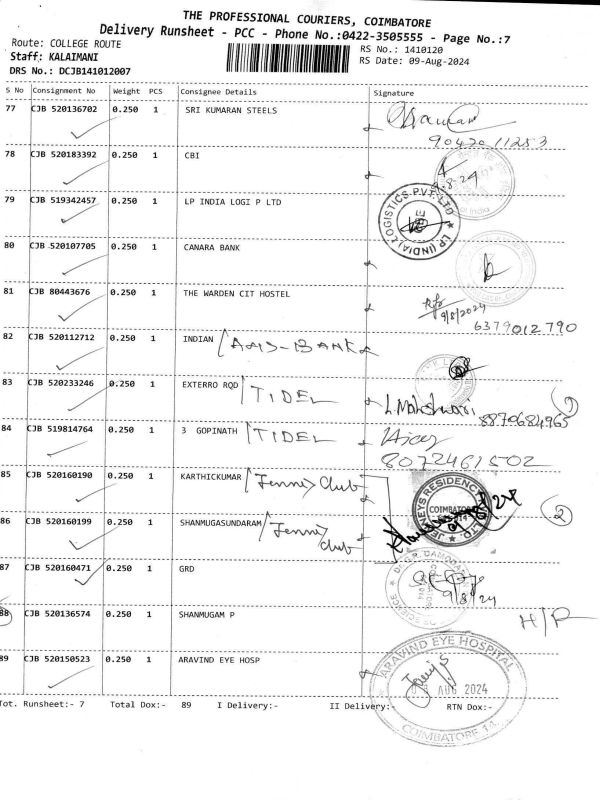 THE PROFESSIONAL COURIERS, COIMBATORE
Delivery Runsheet - PCC - Phone No.:0422-3505555 - Page No.:7
Route: COLLEGE ROUTE
RS No.: 1410120
Staff: KALAIMANI
RS Date: 09-Aug-2024
DRS No.: DCJB141012007
S No Consignment No Weight PCS Consignee Details Signature
77 CJB 520136702 0.250 1 SRI KUMARAN STEELS
9042011253
78 CJB 520183392 0.250 1 CBI
79 CJB 519342457 0.250 1 LP INDIA LOGI P LTD
LP (INDIA) LOGISTICS PVT. LTD
80 CJB 520107705 0.250 1 CANARA BANK
81 CJB 80443676 0.250 1 THE WARDEN CIT HOSTEL
9/8/2024
6379012790
82 CJB 520112712 0.250 1 INDIAN
83 CJB 520233246 0.250 1 EXTERRO RQD TIDEL
8870684965
84 CJB 519814764 0.250 1 3 GOPINATH TIDEL
8072461502
85 CJB 520160190 0.250 1 KARTHICKUMAR Jenneys club
JENNEYS RESIDENCY PVT LTD
COIMBATORE
86 CJB 520160199 0.250 1 SHANMUGASUNDARAM Jenneys club
2
87 CJB 520160471 0.250 1 GRD
9/8/24
88 CJB 520136574 0.250 1 SHANMUGAM P
89 CJB 520150523 0.250 1 ARAVIND EYE HOSP
ARAVIND EYE HOSPITAL
AUG 2024
COIMBATORE 14
Tot. Runsheet:- 7 Total Dox:- 89 I Delivery:- II Delivery:- RTN Dox:-